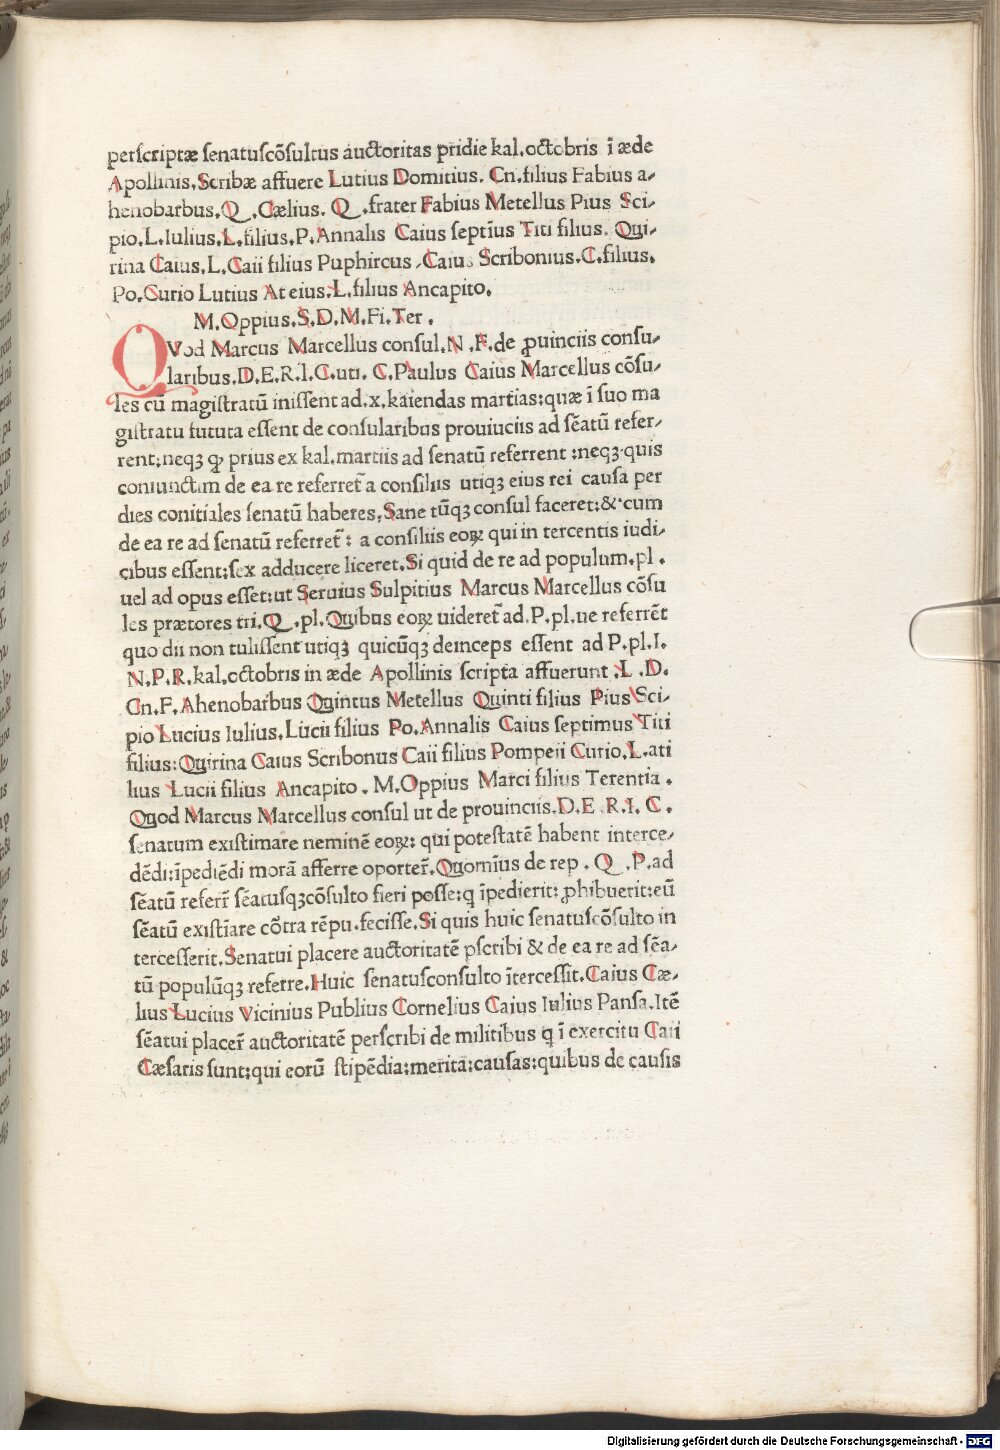 perscriptæ senatuscõsultus auctoritas pridie kal.octobris ĩ æde
Apollinis.Scribæ affuere Lutius Domitius. Cn.filius Fabius a-
henobarbus.Q .Cælius. Q .frater Fabius Metellus Pius Sci-
pio.L.Iulius.L.filius.P.Annalis Caius septĩus Titi filius. Qui-
rina Caius.L.Caii filius Puphircus .Caius Scribonius.C.filius.
Po.Curio Lutius At eius.L.filius Ancapito.
M.Oppius.S.D.M.Fi.Ter.
QVod Marcus Marcellus consul.N .F.de ꝓuinciis consu-
laribus.D.E.R.I.C.uti. C.Paulus Caius Marcellus cõsu-
les cũ magistratũ inissent ad.x.kaiendas martias:quæ ĩ suo ma
gistratu fututa essent de consularibus prouiuciis ad sẽatũ refer-
rent:neqꝫ ꝙ prius ex kal.martiis ad senatũ referrent :neqꝫ quis
coniunctim de ea re referret̃ a consiliis utiqꝫ eius rei causa per
dies conitiales senatũ haberes.Sane tũqꝫ consul faceret:& cum
de ea re ad senatũ referret̃: a consiliis eoꝝ qui in tercentis iudi-
cibus essent:sex adducere liceret.Si quid de re ad populum.pl .
uel ad opus esset:ut Seruius Sulpitius Marcus Marcellus cõsu
les prætores tri.Q .pl.Quibus eoꝝ uideret̃ ad.P.pl.ue referrẽt
quo dii non tulissent utiqꝫ quicũqꝫ deinceps essent ad P.pl.I.
N.P.R.kal.octobris in æde Apollinis scripta affuerunt .L .D.
Cn.F.Ahenobaribus Quintus Metellus Quinti filius Pius Sci-
pio Lucius Iulius.Lucii filius Po.Annalis Caius septimus Titi
filius:Quirina Caius Scribonus Caii filius Pompeii Curio.L.ati
lius Lucii filius Ancapito . M.Oppius Marci filius Terentia .
Quod Marcus Marcellus consul ut de prouinciis.D.E R.I. C.
senatum existimare neminẽ eoꝝ: qui potestatẽ habent interce-
dẽdi:ĩpediẽdi morã afferre oporter̃.Quomĩus de rep . Q .P.ad
sẽatũ referr̃ sẽatusqꝫcõsulto fieri posse:q ĩpedierit: ꝓhibuerit:eũ
sẽatũ existĩare cõtra rẽpu.fecisse.Si quis huic senatuscõsulto in
tercesserit.Senatui placere auctoritatẽ pscribi & de ea re ad sẽa-
tũ populũqꝫ referre.Huic senatusconsulto ĩtercessit.Caius Cæ-
lius Lucius Vicinius Publius Cornelius Caius Iulius Pansa.Itẽ
sẽatui placer̃ auctoritatẽ perscribi de militibus q ĩ exercitu Caii
Cæsaris sunt:qui eorũ stipẽdia:merita:causas:quibus de causis
Digitalisierung gefördert durch die Deutsche Forschungsgemeinschaft - DFG